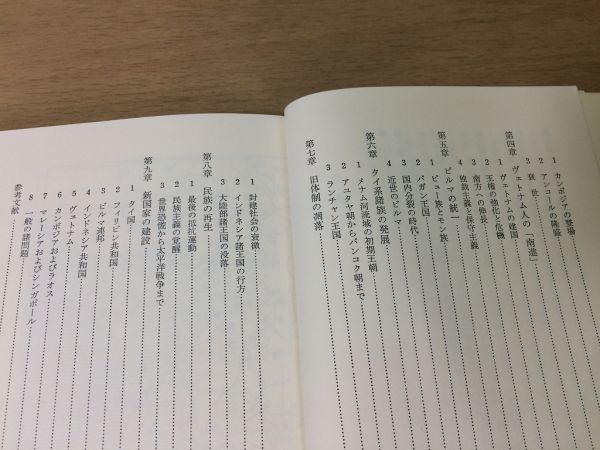 1 カンボジアの登場
2 アンコールの隆盛
3 衰世
第四章 ヴェトナム人の「南進」
1 ヴェトナムの建国
2 王権の強化と危機
3 南方への伸長
4 独裁主義と保守主義
第五章 ビルマの統一
1 ピュー族とモン族
2 パガン王国
3 国内分裂の時代
4 近世のビルマ
第六章 タイ系諸族の発展
1 メナム河流域の初期王朝
2 アユタヤ朝からバンコク朝まで
3 ランチャン王国
第七章 旧体制の凋落
1 封建社会の衰微
2 インドネシア諸王国の行方
3 大陸部諸王国の没落
第八章 民族の再生
1 最後の抵抗運動
2 民族主義の覚醒
3 世界恐慌から太平洋戦争まで
第九章 新国家の建設
1 タイ国
2 フィリピン共和国
3 ビルマ連邦
4 インドネシア共和国
5 ヴェトナム
6 カンボジアおよびラオス
7 マレーシアおよびシンガポール
8 一般の諸問題
参考文献